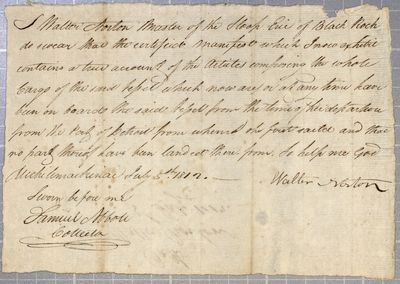 I Walter Norton Master of the Sloop Erie of Black Rock
do swear that the certified Manifest which I now exhibit
contains a true account of the Articles composing the whole
Cargo of the said Vessel which now are or at any time have
been on board the said Vessel from the time of her departure
from the Port of Detroit from whence she first sailed and that
no part thereof have been landed there from. So help me God
Michilimackinac July 5th 1819.
Walter Norton
Sworn before me
Samuel Abbott
Collector